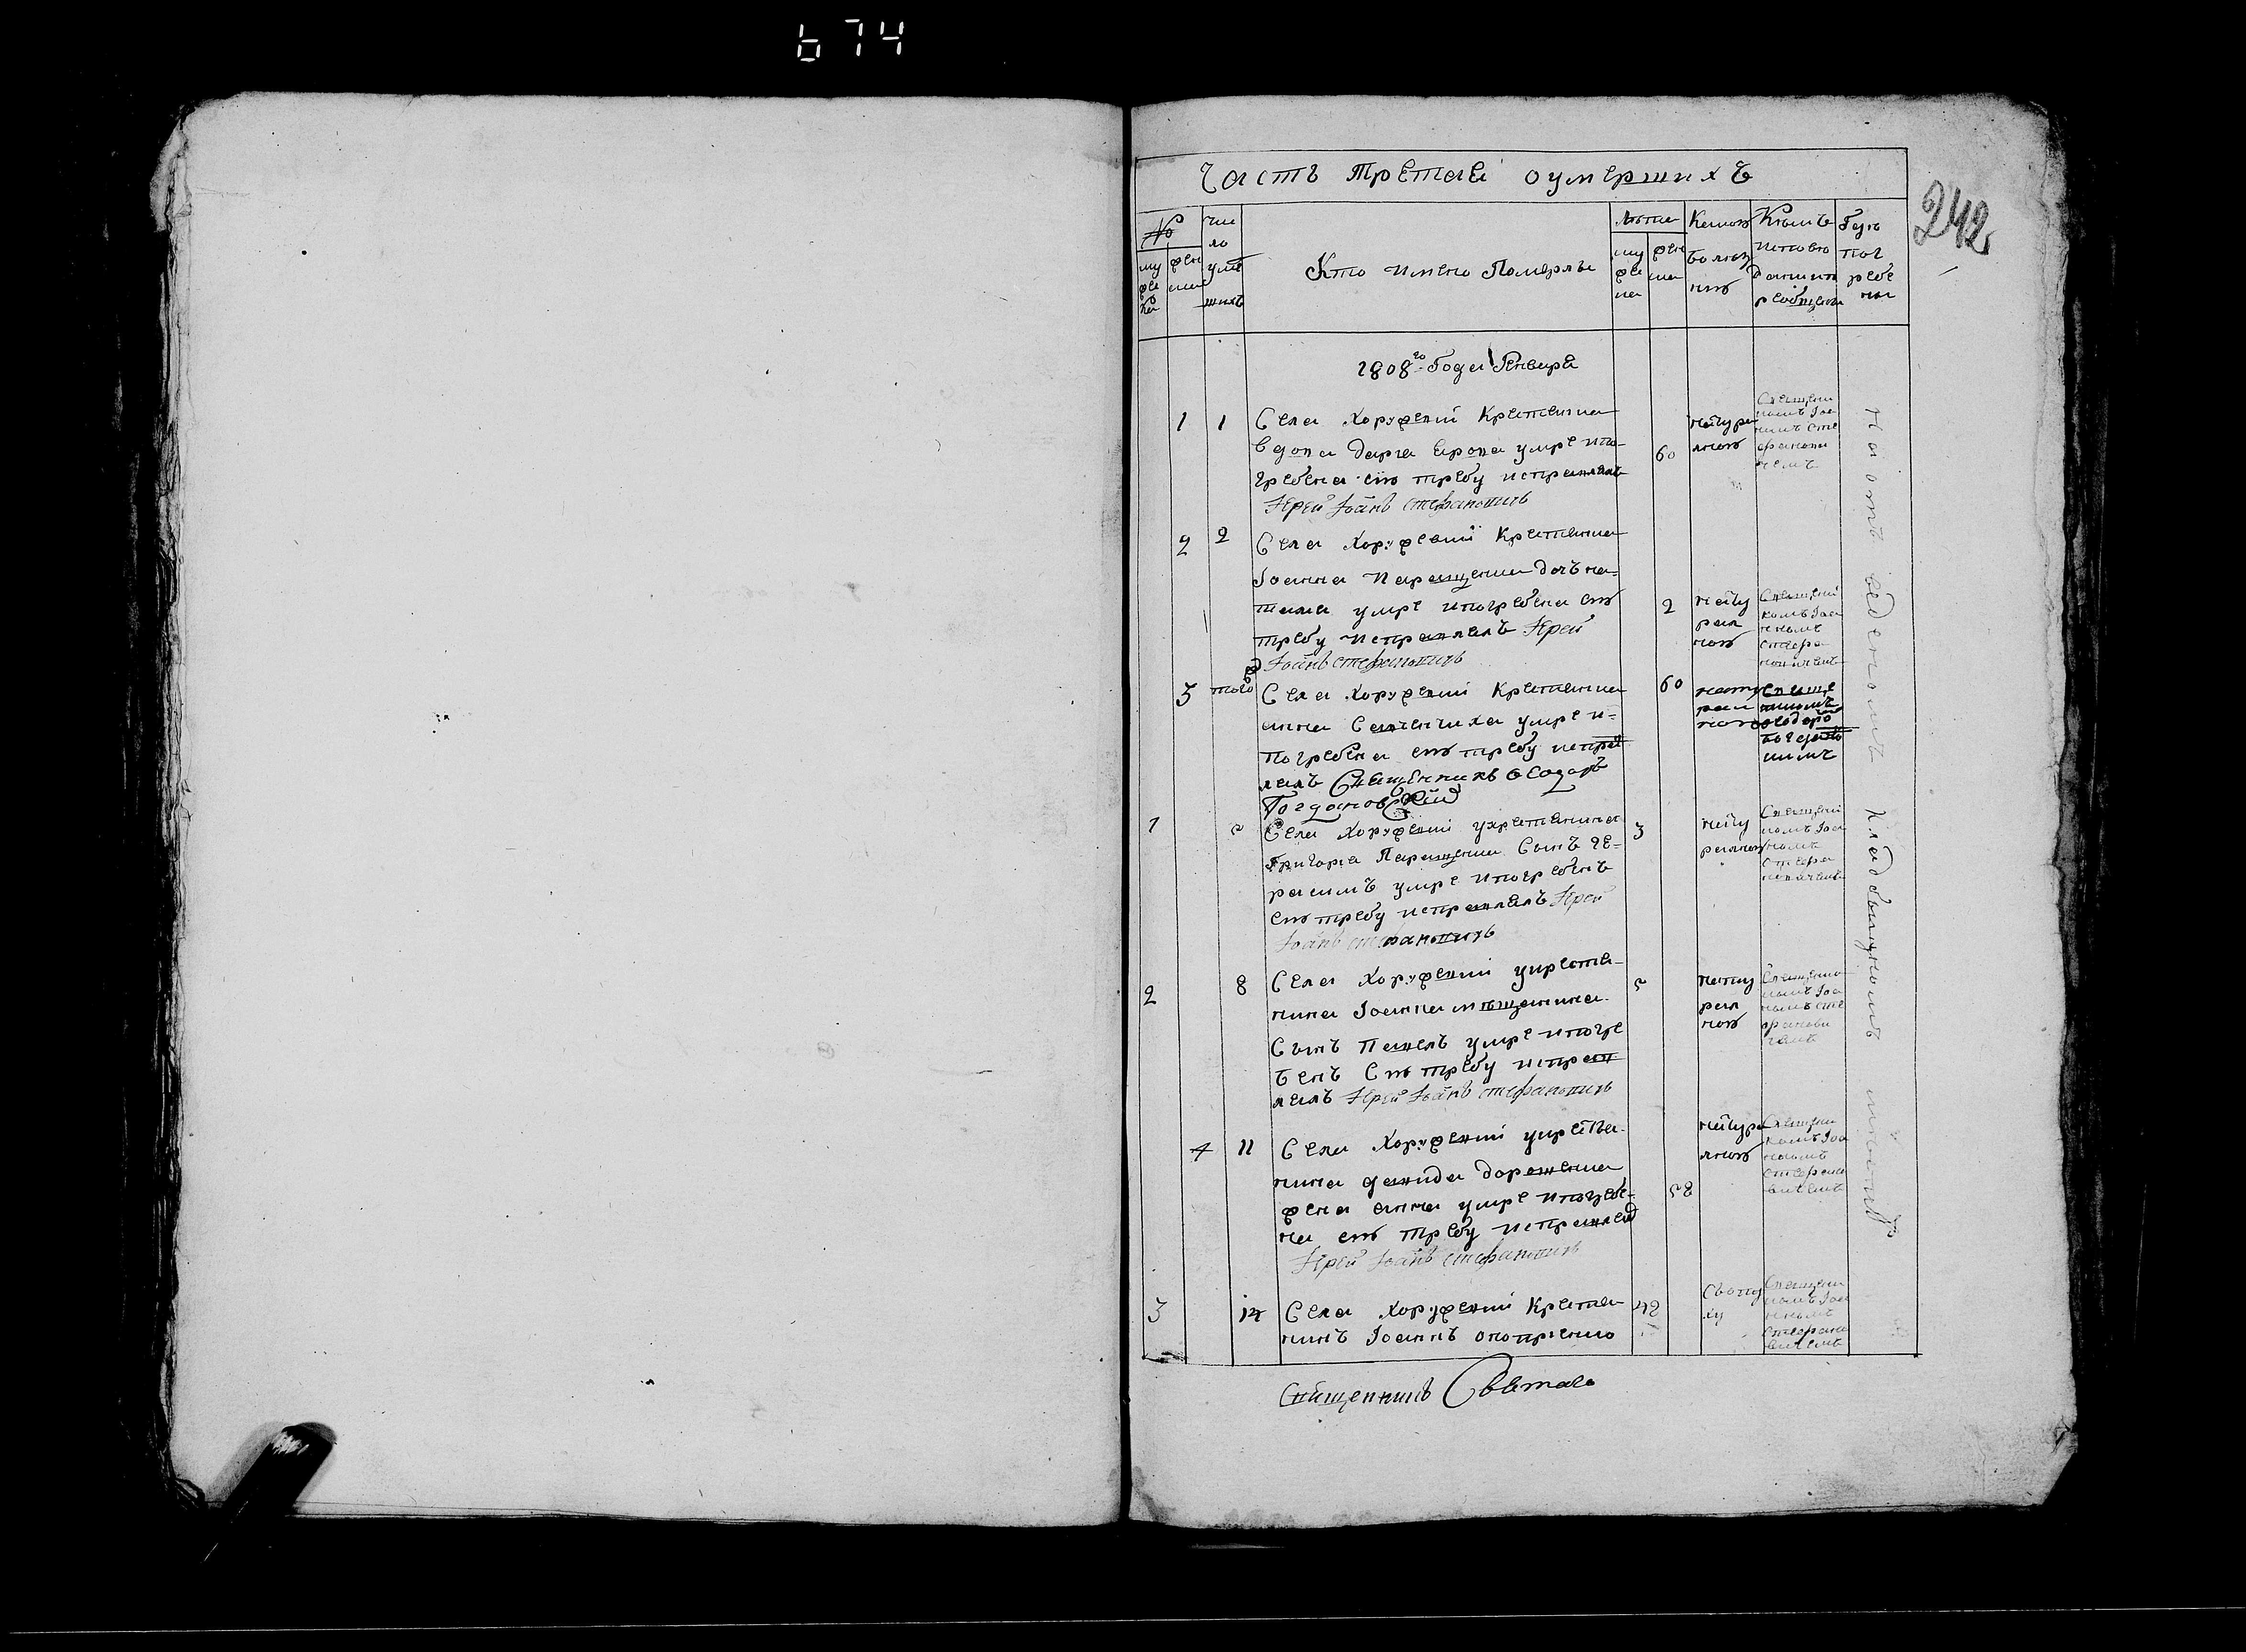 674
242
Часть третая оумершихъ
№
му жеска
жен ска
чи сло умершихъ
Кто имено Померлъ
Лѣта
му жеска
жен ска
Какою болезнію
Кѣмъ исповеданни и пріобщены
Гдѣ погребены
1808го Года Генваря
1 1 Села Хоружевки Крестянина
вдова Дарiа умре и по-
гребена сію требу исправлялъ
Іерей Іоанъ Стефановичъ
60
натуральною
Священникомъ Іоанномъ Стефановичемъ
2 2 Села Хоружевки Крестянина
Іоанна Паращенка дочь На-
талiа умре и погребена сію
требу исправлялъ Іерей
Іоанъ Стефановичъ
2
натуральною
Священникомъ Іоанномъ Стефановичемъ
3 того Села Хоружевки Крестянина
анна умре и
погребена сію требу исправ
лялъ Священникъ Ѳеодоръ
Богдановскій
60
натуральною
1 5 Села Хоружевки укрестянина
Григорiа Паращенка Сынъ Ге-
расимъ умре и погребенъ
сію требу исправлялъ Іерей
Іоанъ Стефановичъ
3
натуральною
Священникомъ Іоанномъ Стефановичемъ
2 8 Села Хоружевки укрестя-
нина Іоанна мѣщанина
Сынъ Павелъ умре и погре
бенъ Сію требу исправ
лялъ Іерей Іоанъ Стефановичъ
5
натуральною
Священникомъ Іоанномъ Стефановичемъ
4 11 Села Хоружевки укрестя-
нина давида
жена анна умре и погребе-
на сію требу исправлялъ
Іерей Іоанъ Стефановичъ
58
натуральною
Священникомъ Іоанномъ Стефановичемъ
3 14 Села Хоружевки Крестя
нинъ Іоаннъ Оноприенко
42
Священникомъ Іоанномъ Стефановичемъ
На отведенномъ Кладбищномъ мѣстѣ
Священникъ